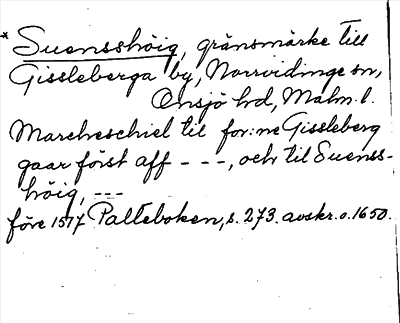 * Suensshöig, gränsmärke till
Gissleberga by, Norrvidinge sn,
Onsjö hd, Malm. l.
Marcheschiel til for:ne Gissleberg
gaar först aff - - -, och til Suenss-
höig, ---
före 1577 Palteboken, s. 273. avskr. o. 1650.